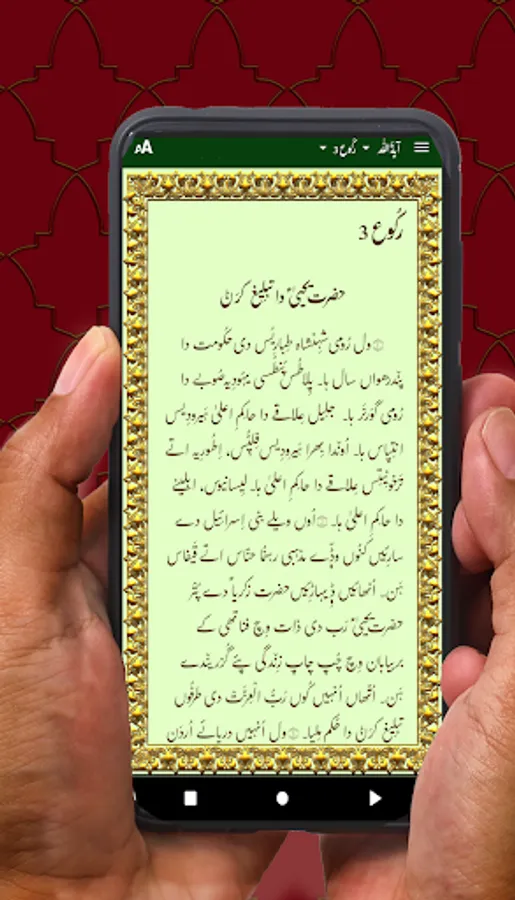 آیۃ اللہ رُکوع 3 AA
رُکوع 3
حضرت یحییٰؑ دا تبلیغ کرݨ
ول رُومی شہنشاہ طِبارِیُس دی حکُومت دا
پندرھواں سال ہا۔ پِلاطُس پُنطُسی یہُودیہ صُوبے دا
رُومی گورنر ہا۔ جلیل علاقے دا حاکم اعلیٰ ہیرودیس
انتِپاس ہا۔ اُوندا بِھرا ہیرودِیس فِلپُّس، اِطُوریہ اتے
ترخونیتِس علاقے دا حاکم اعلیٰ ہا۔ لِیسانیوس، ابلینے
دا حاکم اعلیٰ ہا۔ اُوں ویلے بنی اِسرائیل دے
سارِئیں کَنُوں وݙے مذہبی رہنُما حنّاس اتے قیفاس
ہَن۔ اُنھائیں ݙیہاڑِئیں حضرت زکریاؑ دے پُتر
حضرت یحییٰؑ رب دی ذات وِچ فنا تھی کے
بریابان وِچ چُپ چاپ زِندگی پئے گُزریندے
ہَن۔ اُتھاں اُنہیں کُوں ربُّ الْعِزَّت دی طرفُوں
تبلیغ کرݨ دا حُکم مِلیا۔ ول اُنہیں دریائے اُردن